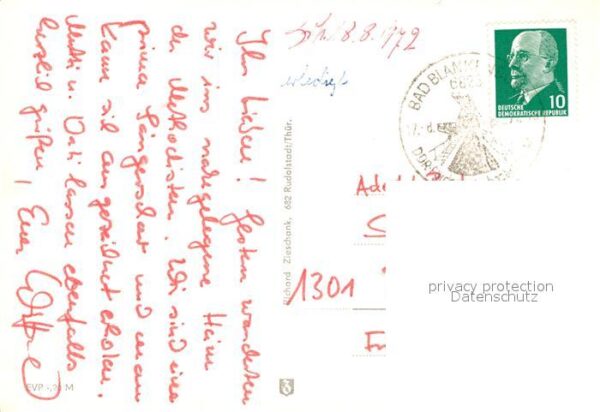 Ihr Lieben! Gestern wanderten
wir ins nahegelegene Heim
der Methodisten. Wir sind eine
prima Sängerschar und man
kann sich ausgezeichnet erholen.
Mutti u. Vati lassen ebenfalls
herzlich grüßen, Euer
8.8.1972
erledigt
DEUTSCHE
DEMOKRATISCHE REPUBLIK
10
BAD BLANKENBURG
6823
Richard Zieschank, 682 Rudolstadt/Thür.
1301
privacy protection
Datenschutz
EVP -,20 M